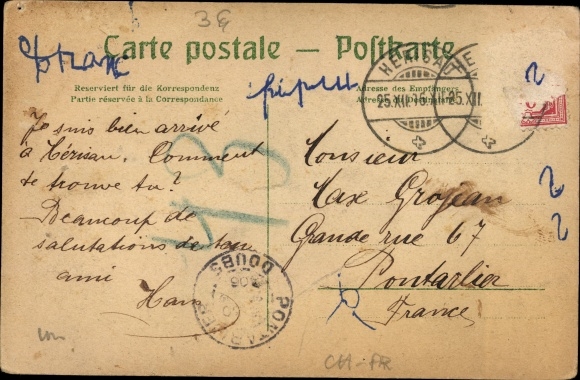 3G
Carte postale — Postkarte
Reserviert für die Korrespondenz
Partie réservée à la Correspondance
Adresse des Empfängers
HERISAU
25.XII.
25.XII.
2
Je suis bien arrivé
à Hérisau. Comment
te trouve tu?
Beaucoup de
salutations de ton
ami
Hans
Monsieur
Max Grosjean
Grande rue 67
Pontarlier
France
2
2
PONTARLIER
DOUBS
CH-FR